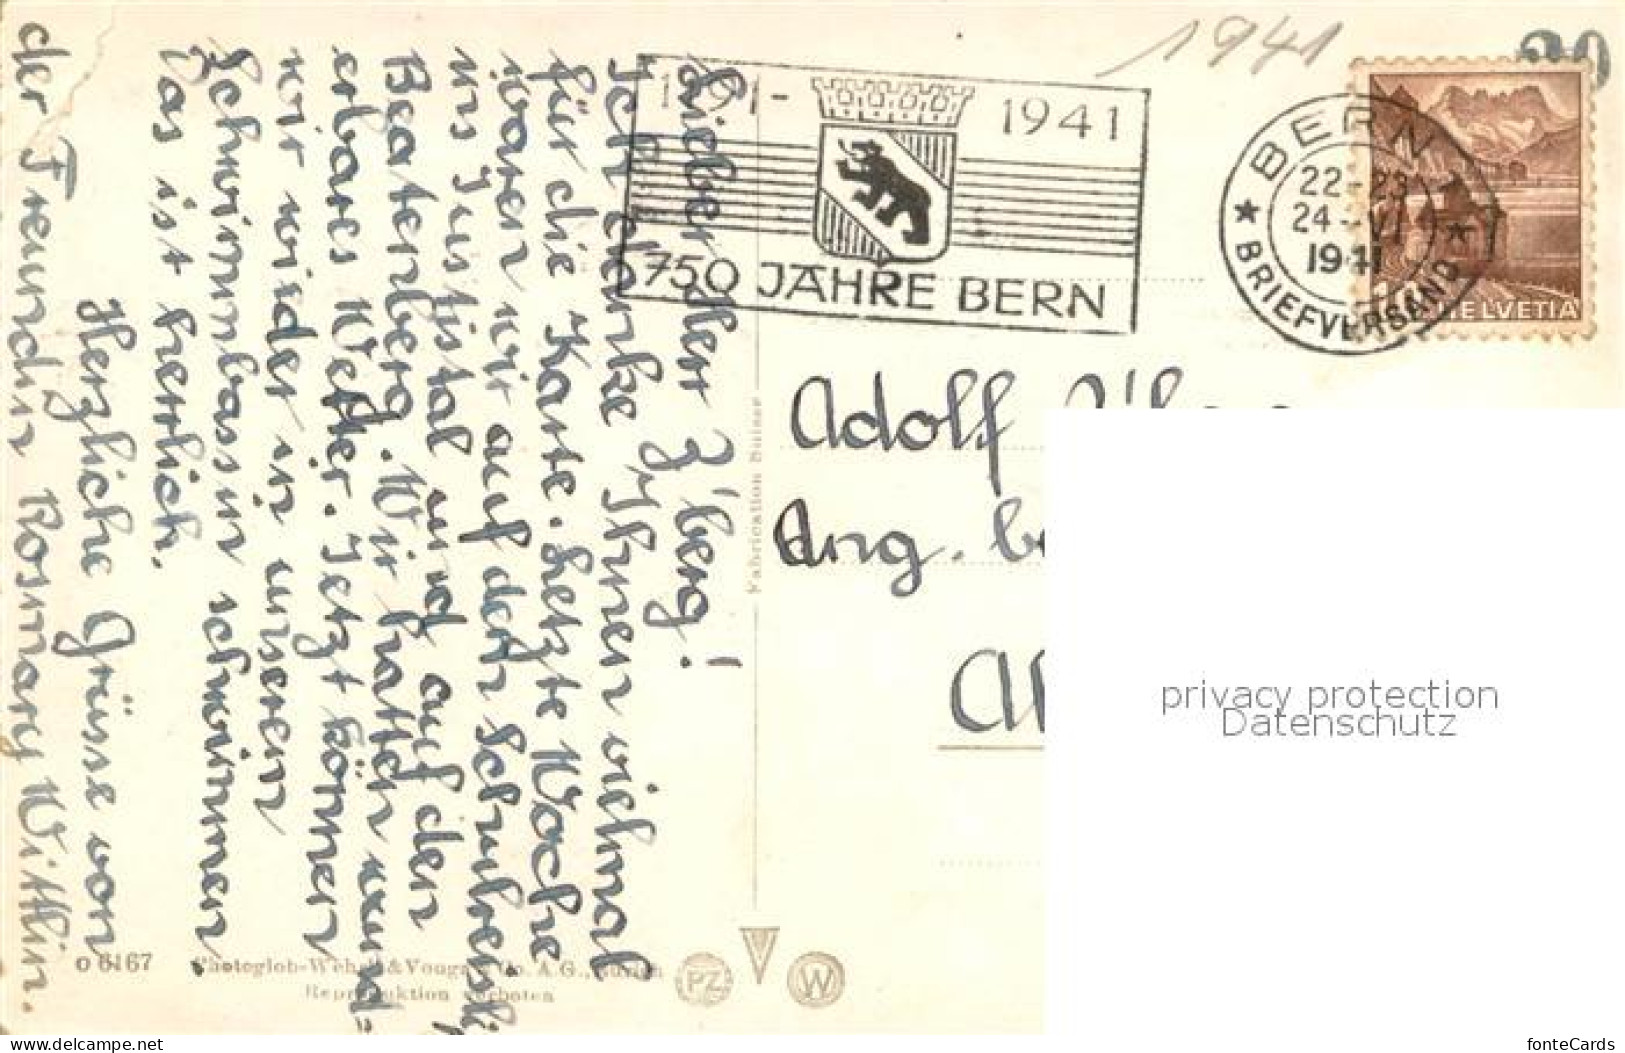 Lieber Herr Z'berg!
Ich danke Ihnen vielmal
für die Karte. Letzte Woche
waren wir auf der Schulreise
ins Justistal und auf den
Beatenberg. Wir hatten wund
erbares Wetter. Jetzt können
wir wieder in unseren
Schwimmbassin schwimmen.
Das ist herrlich.
Herzliche Grüsse von
der Freundin Rosmary Wittlin.
1941
20
1191-
1941
750 JAHRE BERN
BERN
22-23
24-VI
1941
BRIEFVERSAND
10
HELVETIA
Adolf
Ang.
Fabrication Suisse
o 6167
Photoglob-Wehrli & Vouga & Co. A.G., Zürich
Reproduktion verboten
PZ
W
privacy protection
Datenschutz
los-delcampe.net
fonteCards